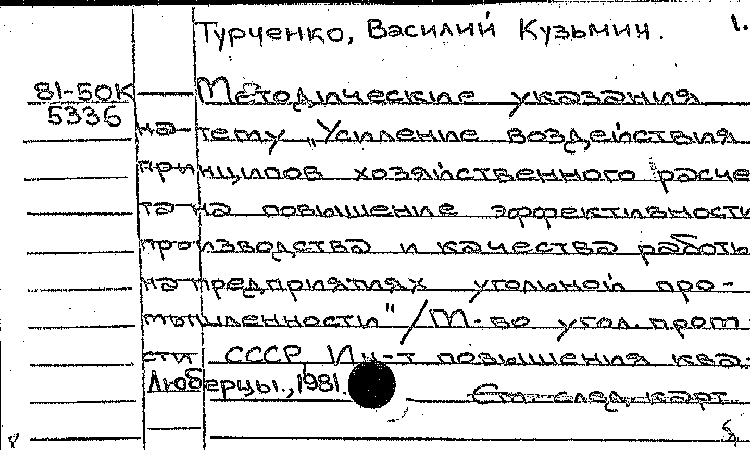 Турченко, Василий Кузьмич. 1.
81-50К Методические указания
5336
на тему „Усиление воздействия
принципов хозяйственного расче
та на повышение эффективности
производства и качества работы
на предприятиях угольной про-
мышленности" / М-во угол. пром
сти СССР, Ин-т повышения ква-
Люберцы., 1981.
См. след. карт